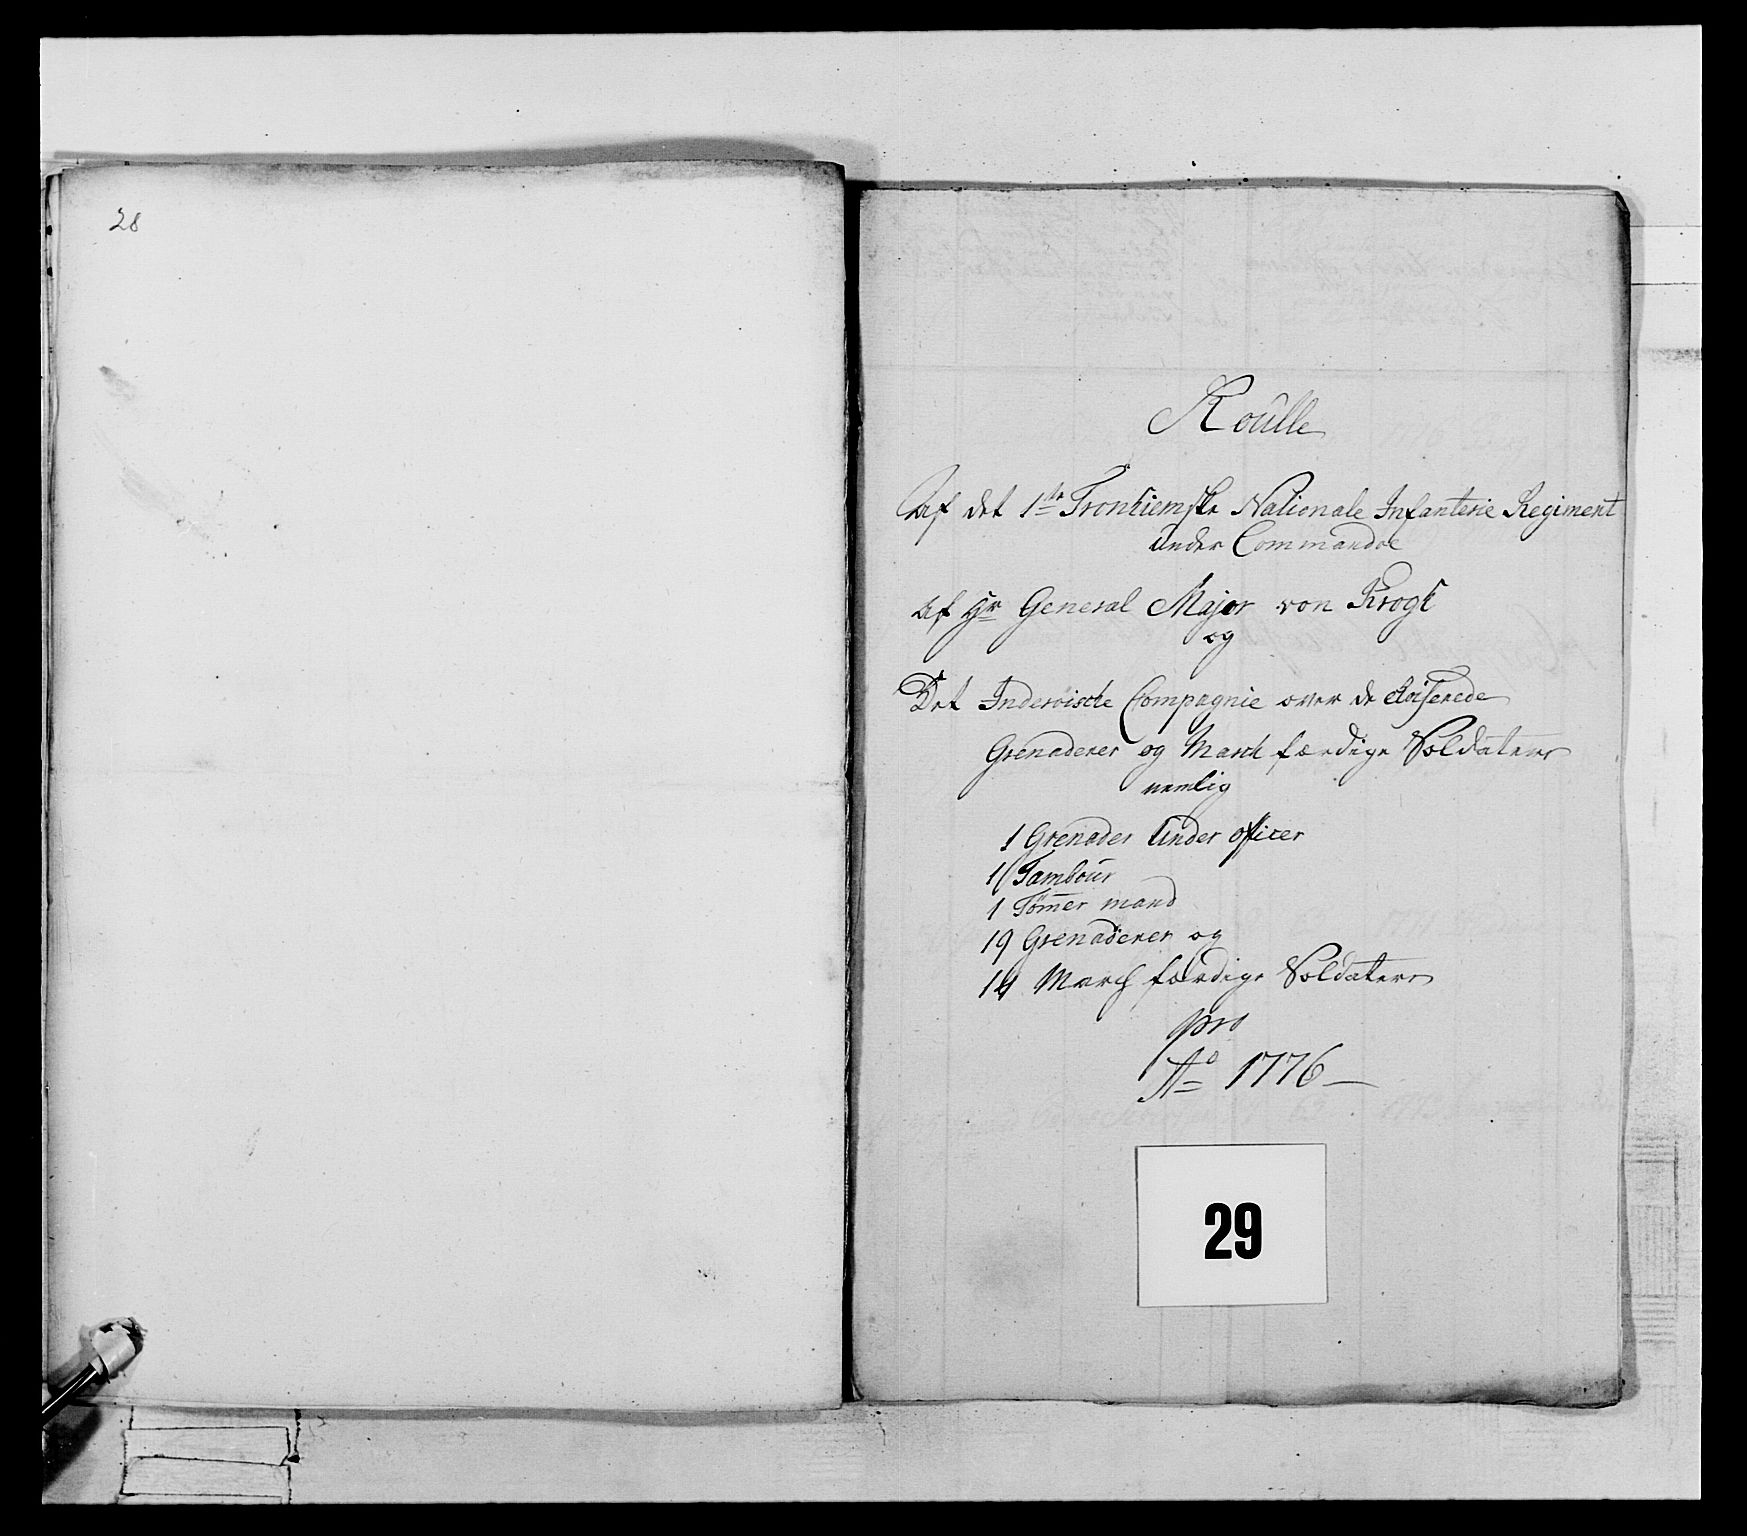 28
Roulle
Af det 1ste Tronhiemske Nationale Infanterie Regiment
under Commandoe
af Hr General Major von Krogh
og
Det Inderöische Compagnie over de
Grenaderer og March færdige Soldatere
nemlig
1 Grenader Under officer
1 Tambour
1 Tömer mand
19 Grenaderer og
14 March færdige Soldatere
pro
Ao 1776
29